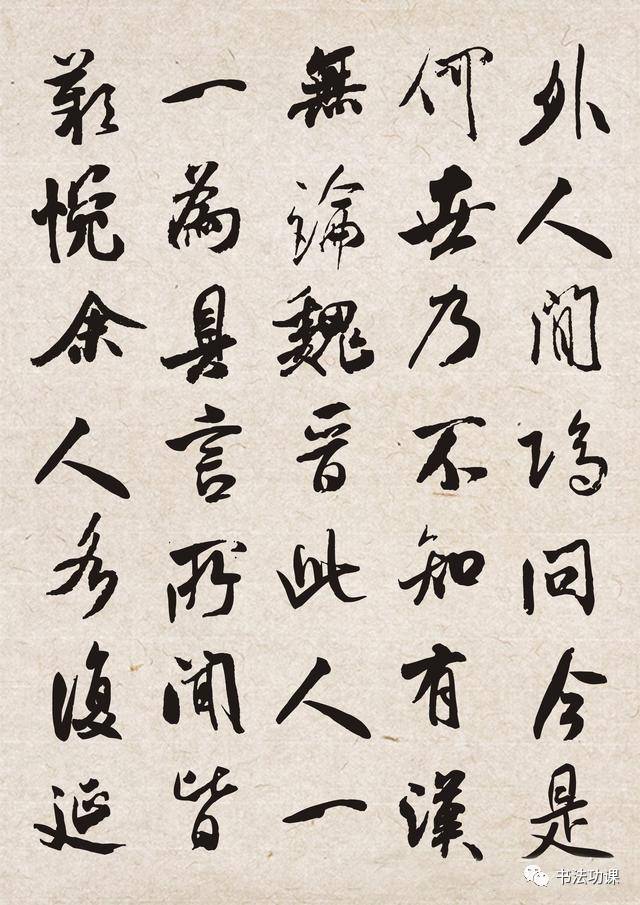 外人間隔問今是
何世乃不知有漢
無論魏晉此人一
一為具言所聞皆
歎惋余人各復延
书法功课